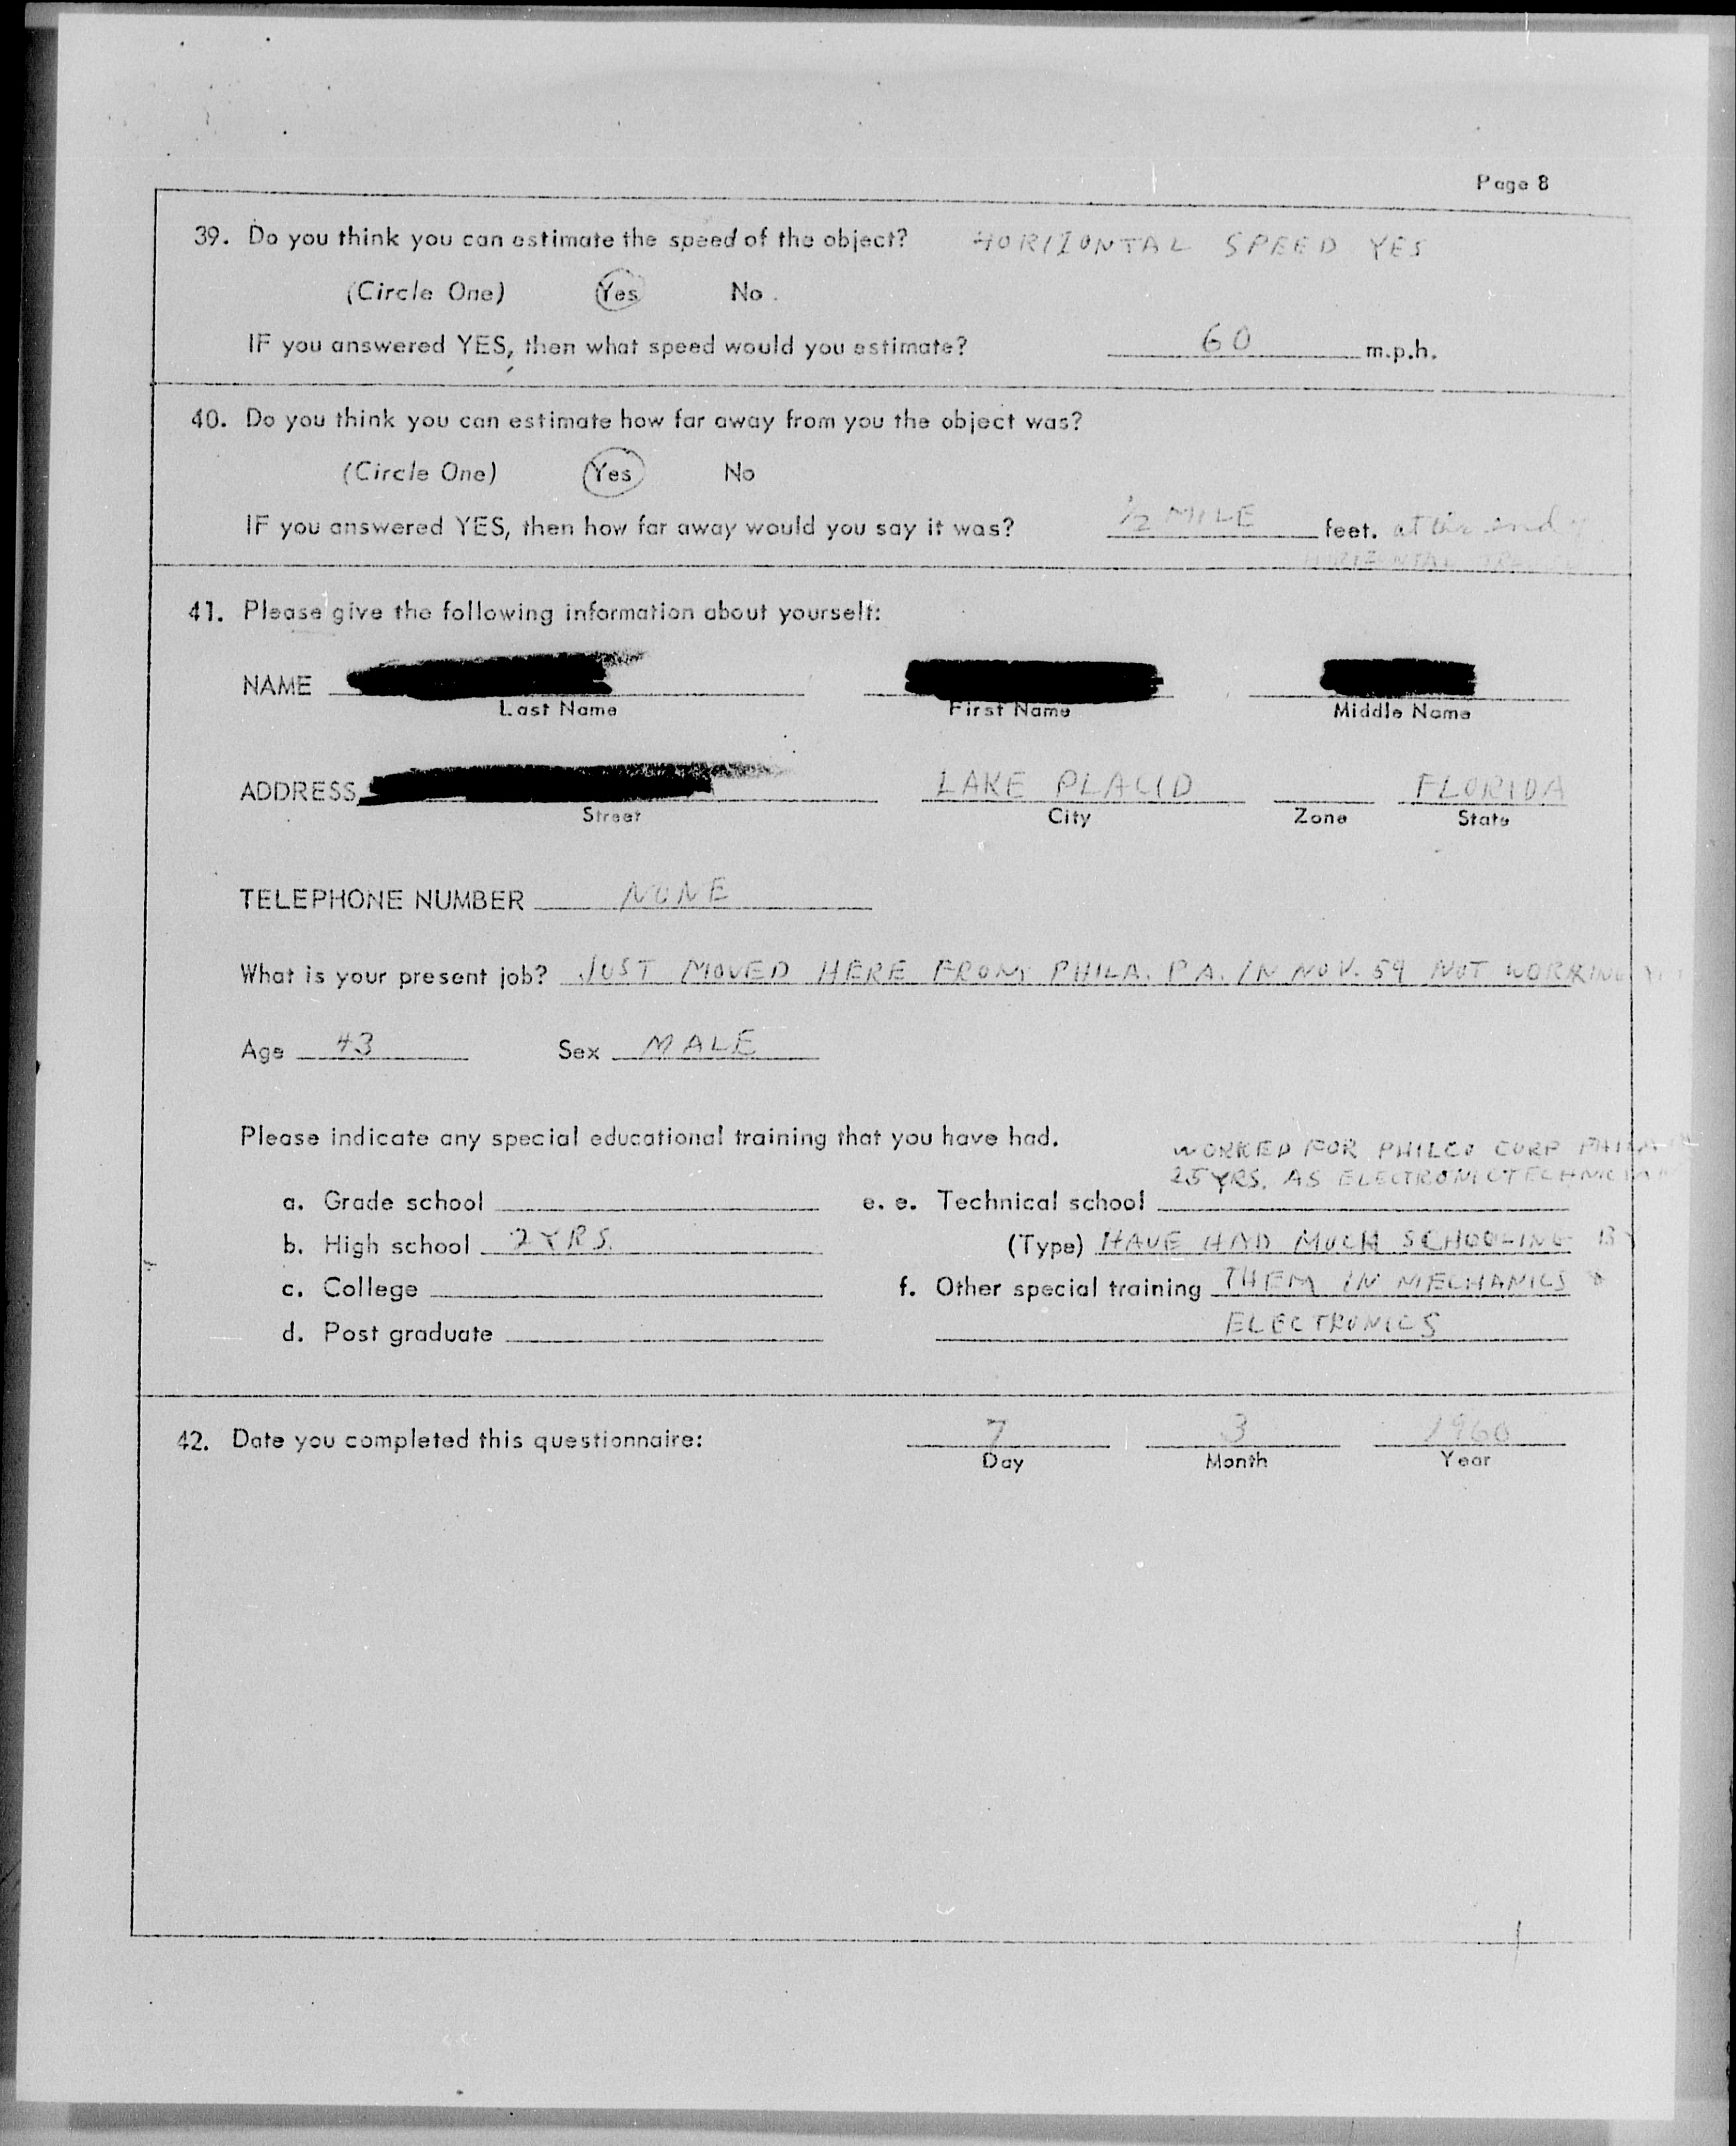 Page 8
39. Do you think you can estimate the speed of the object? HORIZONTAL SPEED YES
(Circle One) Yes No
IF you answered YES, then what speed would you estimate? 60 m.p.h.
40. Do you think you can estimate how far away from you the object was?
(Circle One) Yes No
IF you answered YES, then how far away would you say it was? 1/2 MILE feet. at the end of
HORIZONTAL
41. Please give the following information about yourself:
NAME
Last Name First Name Middle Name
ADDRESS LAKE PLACID FLORIDA
Street City Zone State
TELEPHONE NUMBER NONE
What is your present job? JUST MOVED HERE FROM PHILA. PA. IN NOV. 59 NOT WORKING
Age 43 Sex MALE
Please indicate any special educational training that you have had.
WORKED FOR PHILCO CORP PHILA
25 YRS. AS ELECTRONIC TECHNICIAN
a. Grade school e. e. Technical school
b. High school 2 YRS. (Type) HAVE HAD MUCH SCHOOLING BY
c. College f. Other special training THEM IN MECHANICS &
d. Post graduate ELECTRONICS
42. Date you completed this questionnaire: 7 3 1960
Day Month Year